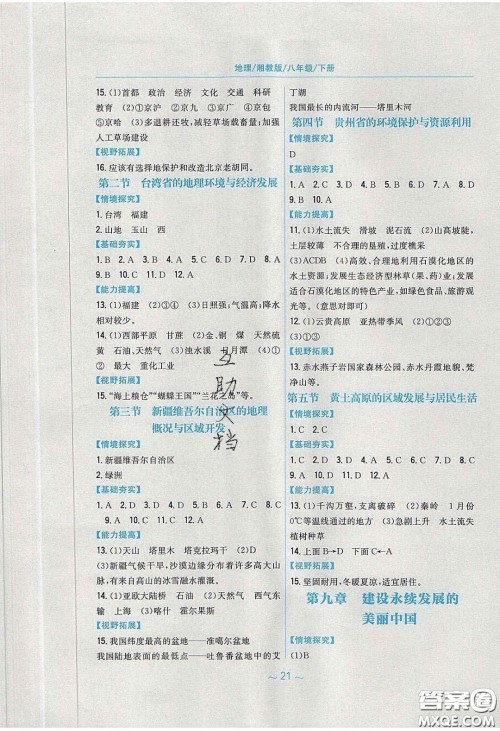 地理/湘教版/八年级/下册
15. (1)首都　政治　经济　文化　交通　科研
教育　(2)①京沪　②京九　③京广　④京包
⑤京哈　(3)多退耕还牧，减轻草场载畜量；加强
人工草场建设
【视野拓展】
16. 应该有选择地保护和改造北京老胡同。
第二节　台湾省的地理环境与经济发展
【情境探究】
1. 台湾　福建
2. 山地　玉山　西
【基础夯实】
1. B　2. A　3. D　4. B　5. D　6. A　7. A　8. D
9. B　10. C　11. D　12. A
【能力提高】
13. (1)福建　(2)③④　(3)日照强；气温高；降水
相对较少。
14. (1)西部平原　甘蔗　(2)金、铜　煤　天然气　硫
黄　石油、天然气　(3)浊水溪　日月潭　(4)①
②　最大　重化工业
【视野拓展】
15. “海上粮仓”“蝴蝶王国”“兰花之岛”等。
第三节　新疆维吾尔自治区的地理
概况与区域开发
【情境探究】
1. 新疆维吾尔自治区
2. 绿洲
【基础夯实】
1. D　2. B　3. A　4. D　5. A　6. C　7. B　8. C
9. A　10. C　11. D　12. A
【能力提高】
13. (1)天山　塔里木　塔克拉玛干　(2)D　(3)
新疆气候干旱，沙漠边缘分布着许多高大山
脉，来自高山的冰雪融水灌溉。
14. (1)亚欧大陆桥　石油　(2)天然气　西气东
输　上海　(3)喀什　霍尔果斯
【视野拓展】
15. 我国纬度最高的盆地——准噶尔盆地
我国陆地表面的最低点——吐鲁番盆地中的艾
丁湖
我国最长的内流河——塔里木河
第四节　贵州省的环境保护与资源利用
【情境探究】
D
【基础夯实】
1. A　2. C　3. D　4. B　5. A　6. B　7. D　8. D
9. C　10. D
【能力提高】
11. (1)水土流失　滑坡　泥石流　(2)山高坡陡，
土层较薄　不合理的垦殖，过度樵采
(3)ACDB　(4)高效、合理地利用石漠化地区的
水土资源；发展生态经济型林草(果、药)业；发展
适合石漠化地区的优势产业，如绿色食品、旅游观
光等。(意思对即可)
12. (1)云贵高原　亚热带季风　(2)①　(3)D
(3)①③
【视野拓展】
13. 赤水燕子岩国家森林公园、赤水丹霞地貌、梵
净山等。
第五节　黄土高原的区域发展与居民生活
【基础夯实】
1. C　2. D　3. D　4. C　5. A　6. B　7. A　8. C
9. A　10. A　11. D　12. D
【能力提高】
13. (1)千沟万壑，支离破碎　(2)秦岭　1月份
0℃等温线通过的地方　(3)急剧上升　水土流失
植树种草
14. 上面B→D　下面C→A
【视野拓展】
15. 坚固耐用，冬暖夏凉，适宜居住。
第九章　建设永续发展的
美丽中国
【情境探究】
(1)B
～21～
互助文档
答案圈
MXQE.COM